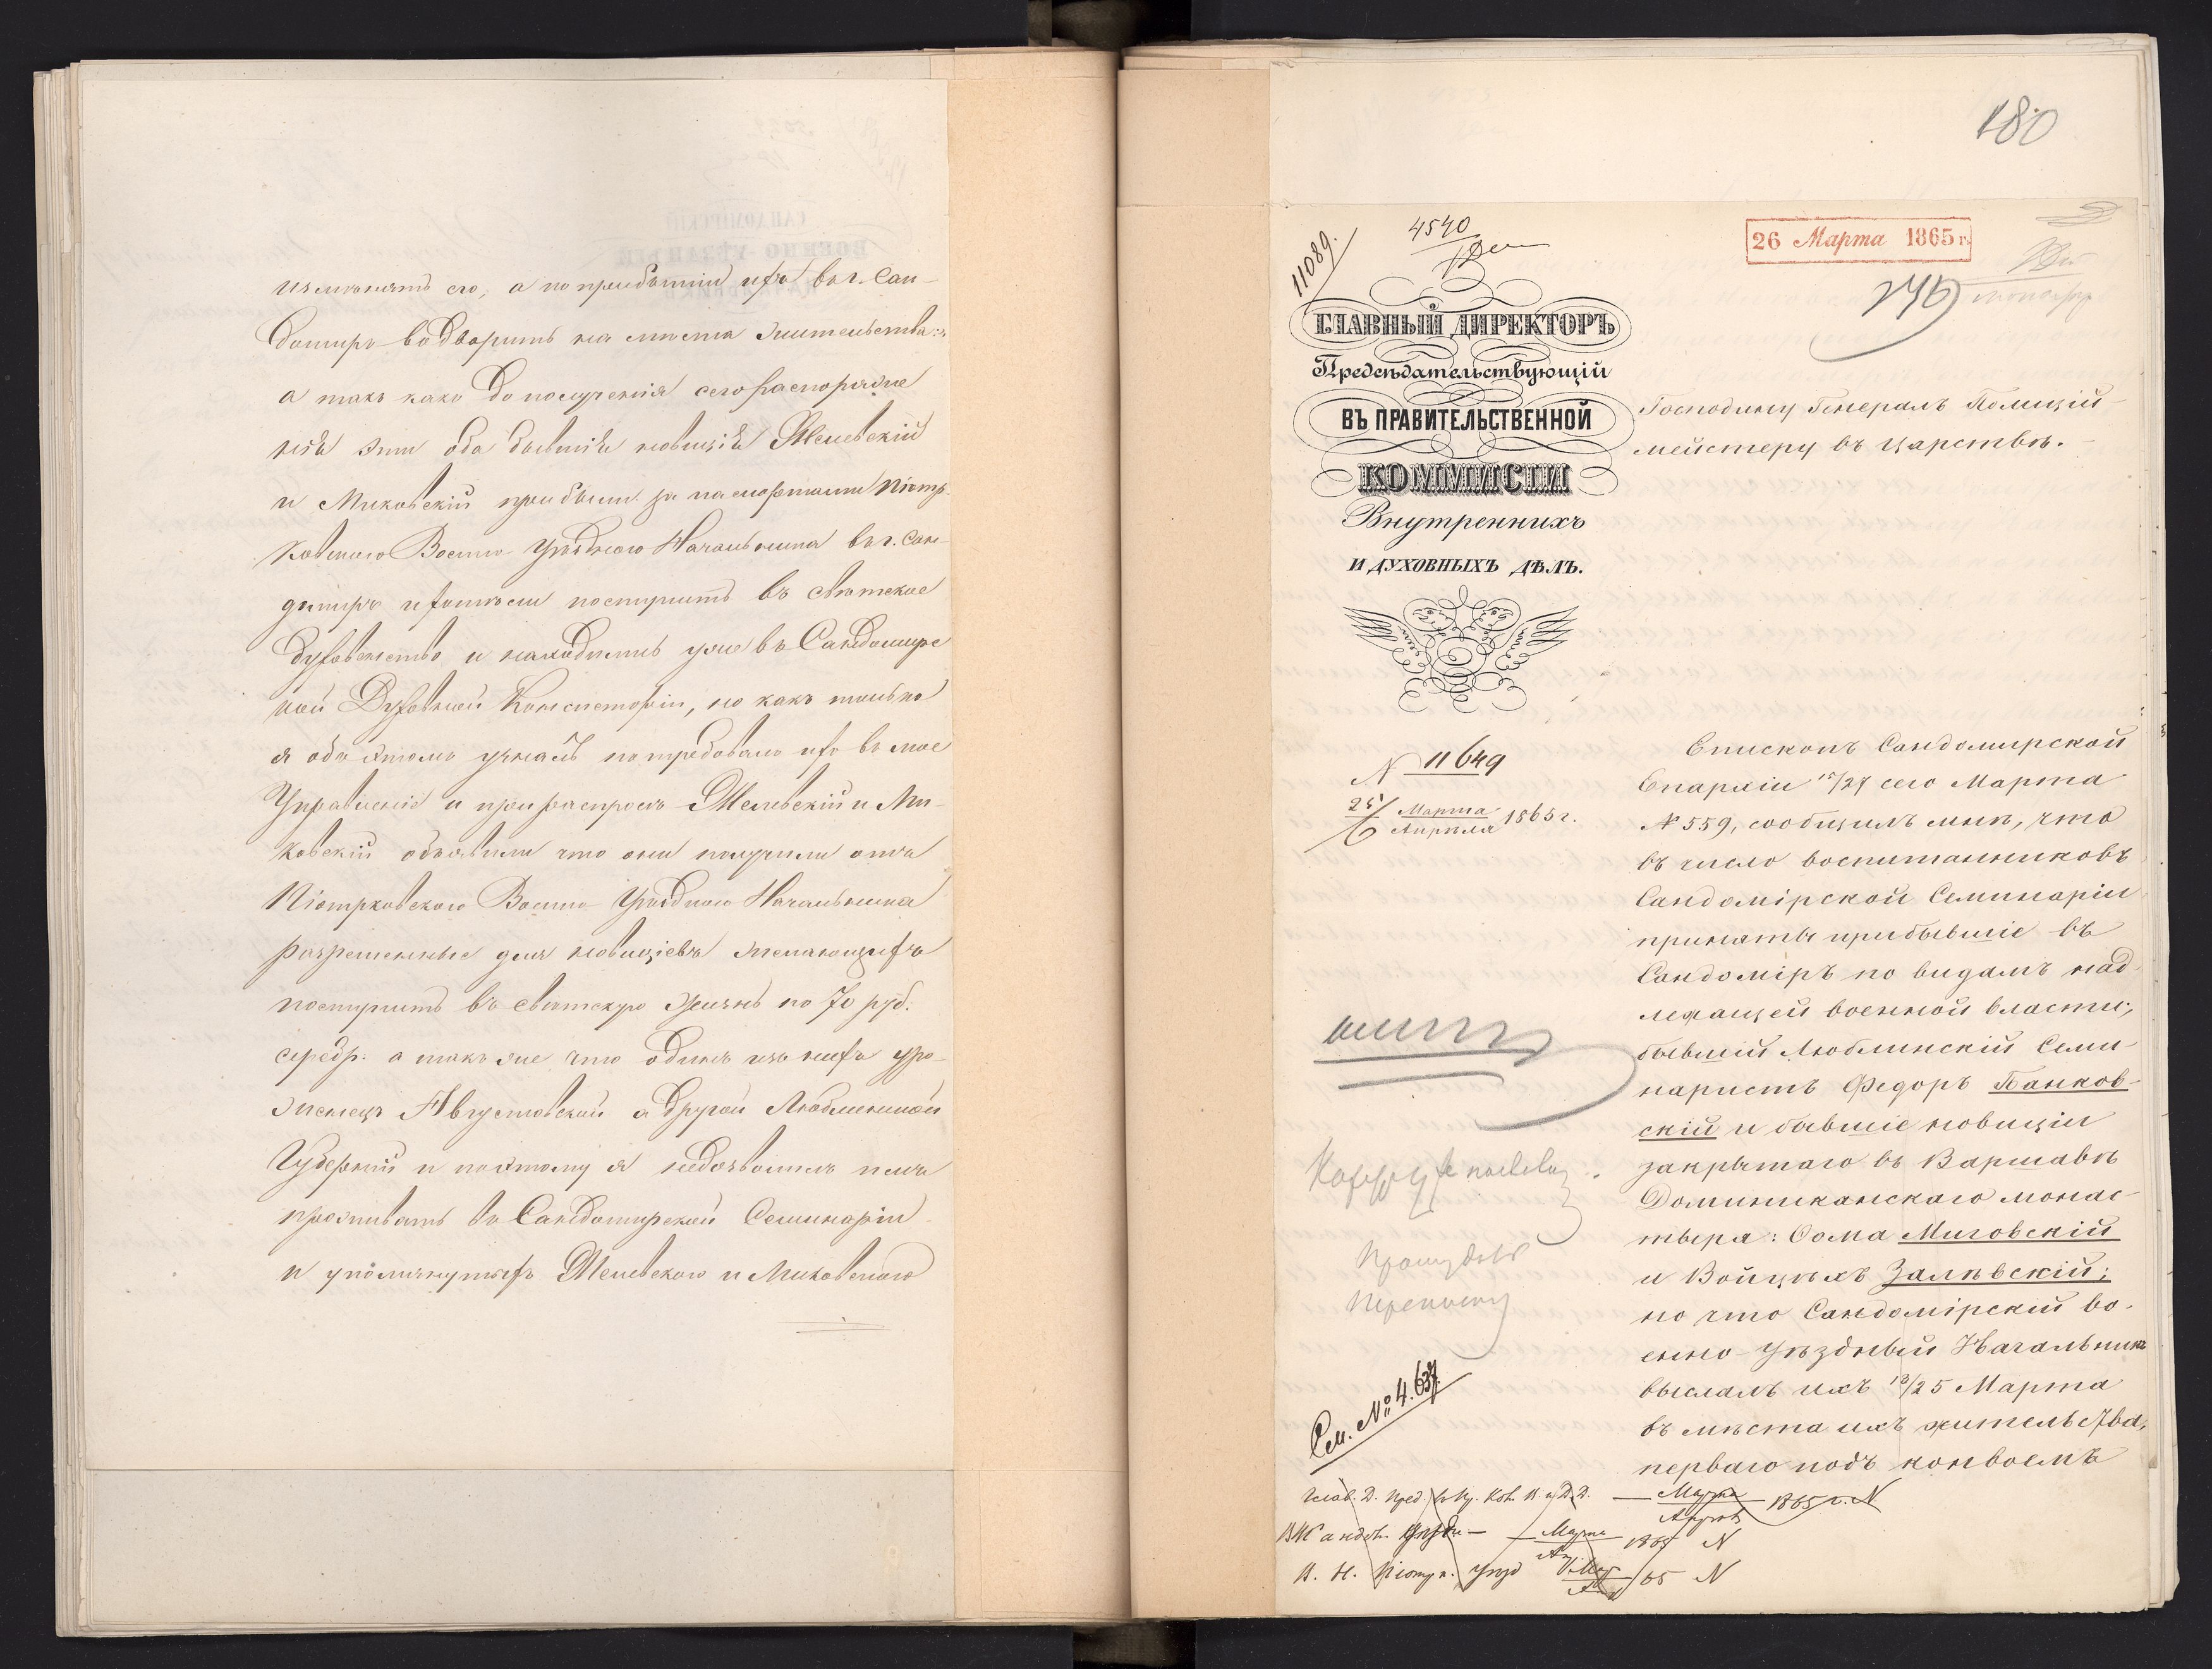 измѣнять его, а по прибытіи ихъ въ г. Сан-
домиръ водворить на мѣста жительства:
а такъ какъ до полученія сего распоряже
нія эти оба бывшіе новиціи Желевскій
и Миховскій прибыли за паспортами Піотр-
ковского Военно Уѣзднаго Начальника въ г. Сан-
домиръ и хотѣли поступить въ свѣтское
духовенство и находились уже въ Сандомирс
кой Духовной Консисторіи, но какъ только
я объ этомъ узналъ потребовалъ ихъ въ мое
Управленіе и при распросѣ Желевскій и Ми-
ховскій объявили что они получили отъ
Піотрковского Военно Уѣзднаго Начальника
разрешенные для новиціевъ желающихъ
поступить въ свѣтскую жизнь по 70 руб.
серебр. а такъ же что одинъ изъ нихъ уро-
женецъ Августовской а другой Люблинской
Губерній и поэтому я недозволилъ имъ
проживать въ Сандомирской Семинаріи
и упомянутыхъ Желевского и Миховского
180
26 Марта 1865 г.
11089.
4540
ГЛАВНЫЙ ДИРЕКТОРЪ
Предсѣдательствующій
ВЪ ПРАВИТЕЛЬСТВЕННОЙ
КОММИСІИ
Внутреннихъ
И ДУХОВНЫХЪ ДѢЛЪ.
N 11649
25/6 Марта/Апрѣля 1865 г.
Господину Генералъ Полиций-
мейстеру въ Царствѣ.
Епископъ Сандомирской
Епархіи 15/27 сего Марта
№ 559, сообщилъ мнѣ, что
въ число воспитанниковъ
Сандомірской Семинаріи
приняты прибывшіе въ
Сандоміръ по видамъ над-
лежащей военной власти;
бывшій Люблинскій Семи-
наристъ Федоръ Банков-
скій и бывшіе новиціи
закрытаго въ Варшавѣ
Доминиканскаго монас-
тыря: Ѳома Миховскій
и Войцѣхъ Залѣвскій;
но что Сандомірскій во-
енно-уѣздный Начальникъ
выслалъ ихъ 13/25 Марта
въ мѣста ихъ жительства,
перваго подъ конвоемъ
переписку
См. № 4.637.
Глав. Д. Пред. в Пр. Ком. В. и Д. Д. Марта/Апрѣля 1865 г. N
Марта 1865 N
В. Н. Піотрк. Уѣзд 65 N